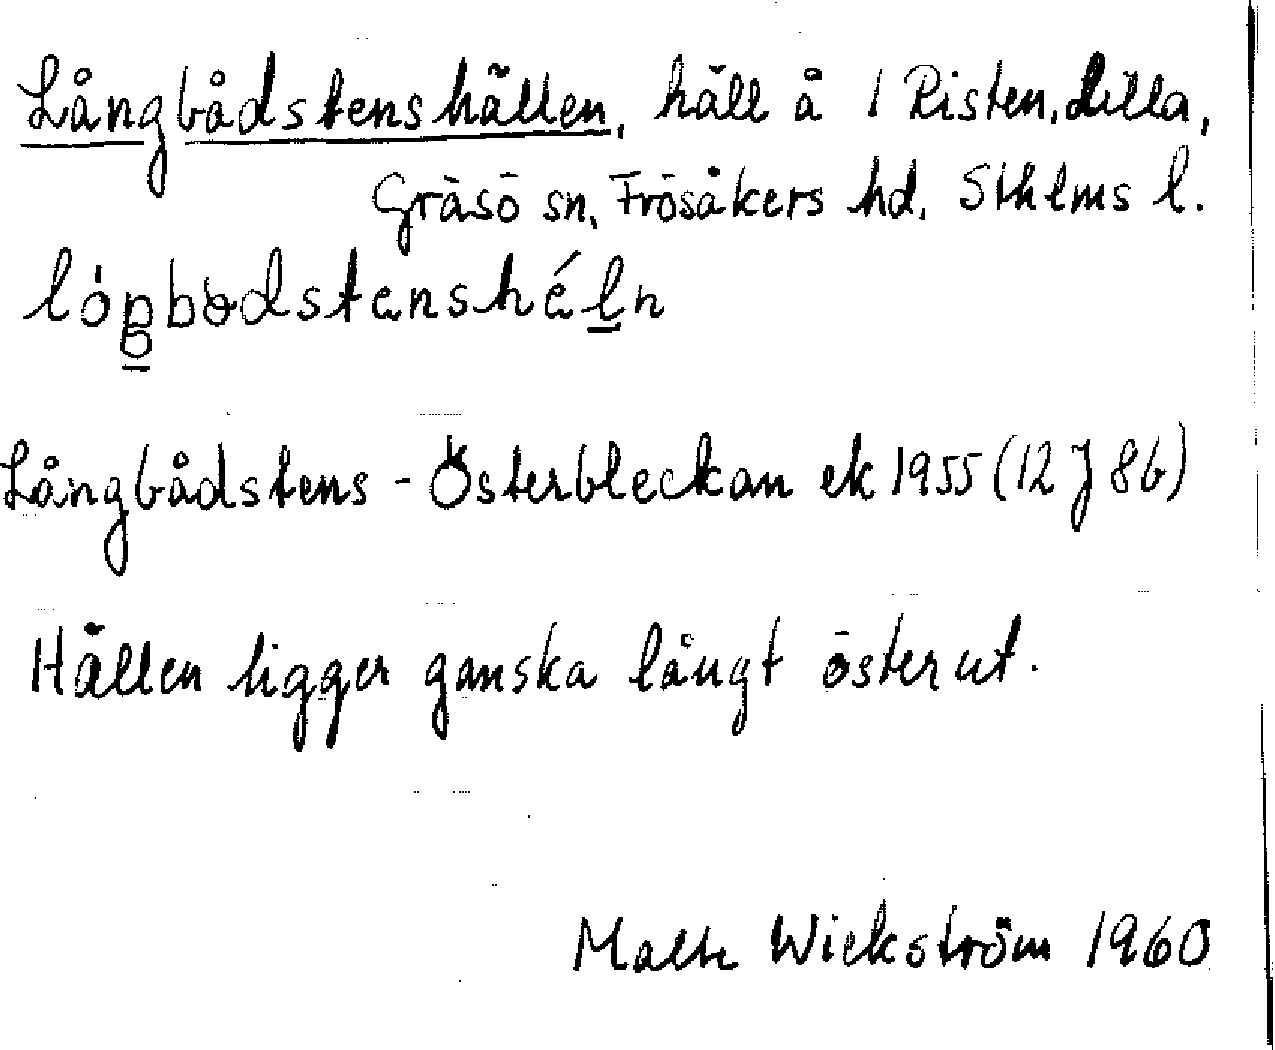 Långbådstenshällen, häll å 1 Risten, Lilla,
Gräsö sn, Frösåkers hd, Sthlms l.
Långbådstens-Österbleckan ek 1955 (12 J 8b)
Hällen ligger ganska långt österut.
Malte Wickström 1960